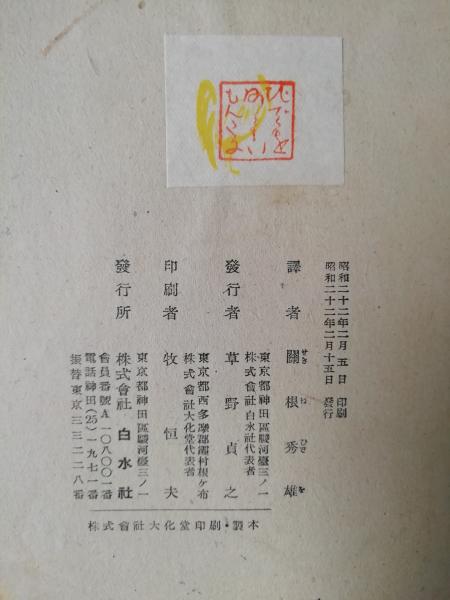 昭和二十二年二月五日 印刷
昭和二十二年二月十五日 發行
譯者 關根秀雄
せきねひでを
東京都神田區駿河臺三ノ一
株式會社白水社代表者
發行者 草野貞之
東京都西多摩郡霞村根ヶ布
株式會社大化堂代表者
印刷者 牧恒夫
東京都神田區駿河臺三ノ一
發行所 株式會社 白水社
會員番號A一〇八〇〇一番
電話神田(25)一九七一番
振替東京三三二二八番
株式會社大化堂印刷・製本